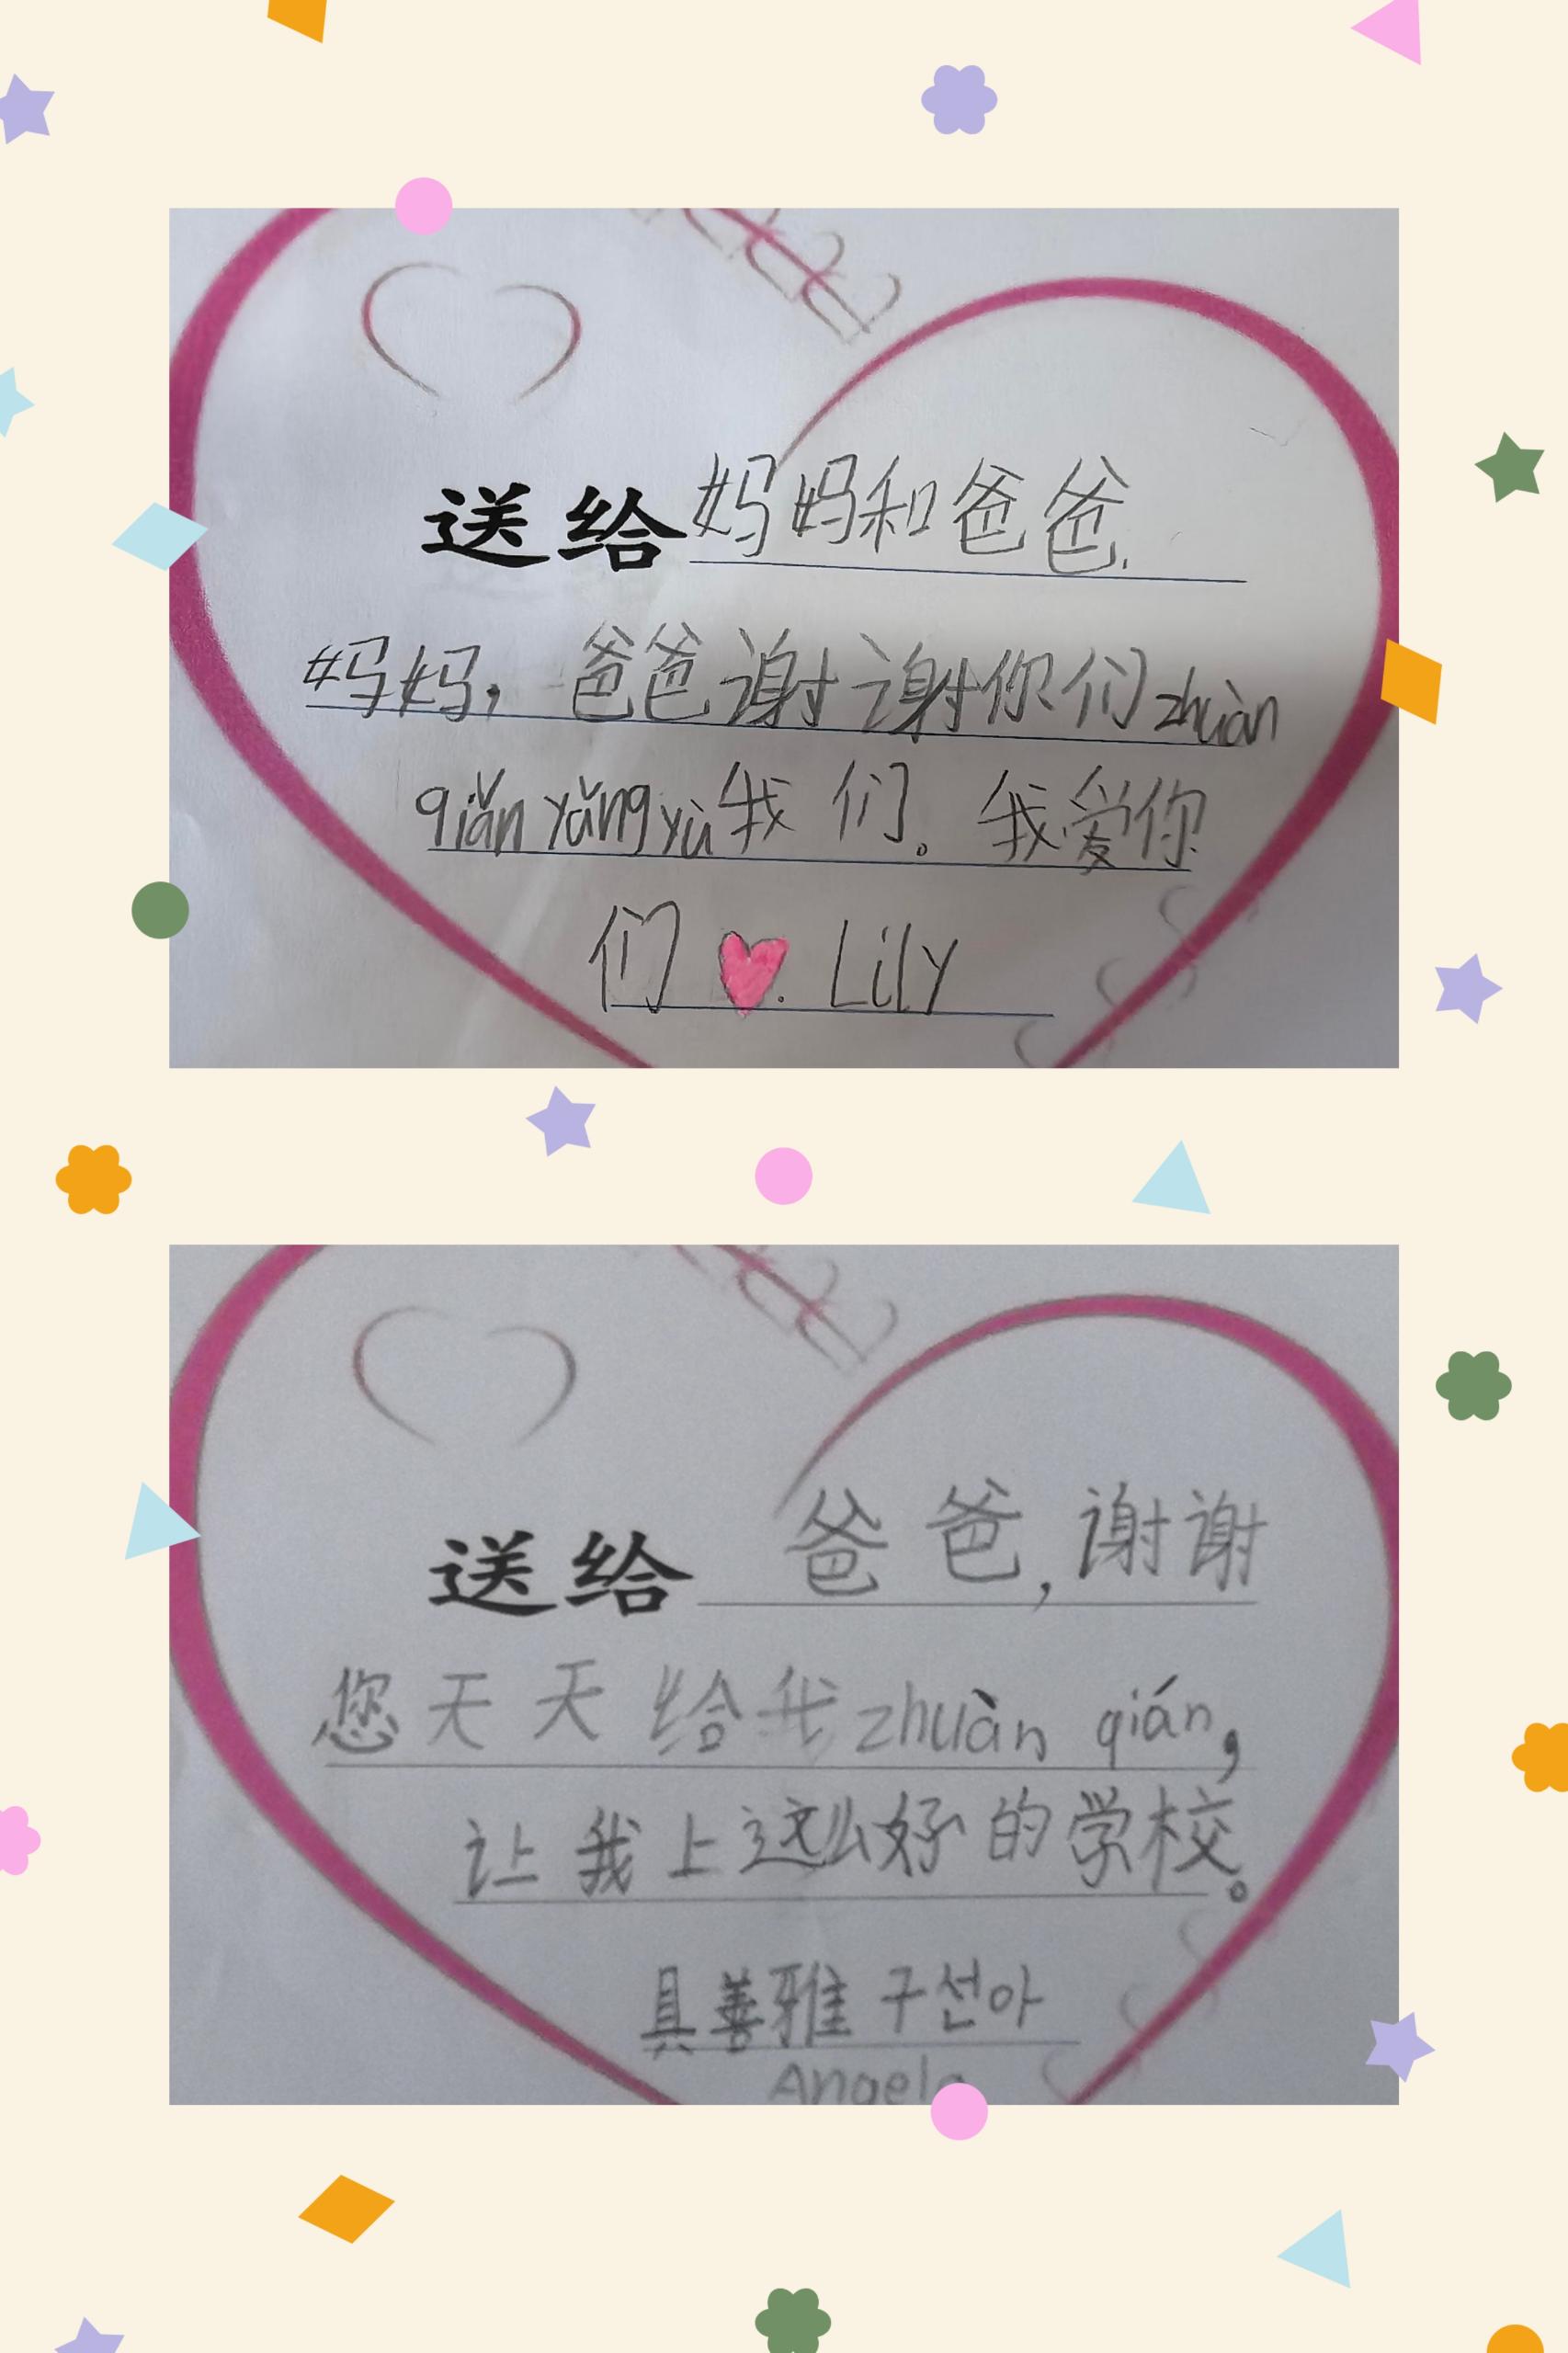 送给妈妈和爸爸.
妈妈, 爸爸谢谢你们zhuàn
qiǎn yǎng yù我们。我爱你
们 ♥. Lily
送给 爸爸,谢谢
您天天给我zhuàn qián,
让我上这么好的学校。
具善雅 구선아
Angela